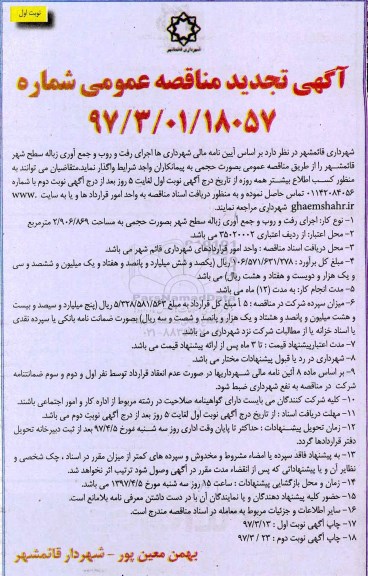 نوبت اول
شهرداری قائمشهر
آگهی تجدید مناقصه عمومی شماره
۹۷/۳/۰۱/۱۸۰۵۷
شهرداری قائمشهر در نظر دارد بر اساس آیین نامه مالی شهرداری ها اجرای رفت و روب و جمع آوری زباله سطح شهر
قائمشهر را از طریق مناقصه عمومی بصورت حجمی به پیمانکاران واجد شرایط واگذار نماید.متقاضیان می توانند به
منظور کسب اطلاع بیشتر همه روزه از تاریخ درج آگهی نوبت اول لغایت ۵ روز بعد از درج آگهی نوبت دوم با شماره
۰۱۱۴۲۰۸۴۰۵۶ تماس حاصل نموده و به منظور دریافت اسناد مناقصه به واحد امور قرارداد ها و یا به سایت www.
ghaemshahr.ir شهرداری مراجعه نمایند.
۱- نوع کار: اجرای رفت و روب و جمع آوری زباله سطح شهر بصورت حجمی به مساحت ۲/۹۰۶/۸۶۹ مترمربع
۲- محل اعتبار: از ردیف اعتباری ۳۵۰۲۰۰۰۲ می باشد.
۳- محل دریافت اسناد مناقصه : واحد امور قراردادهای شهرداری قائم شهر می باشد.
۴- مبلغ کل برآورد : ۱۰۶/۵۷۱/۶۳۱/۲۷۸ ریال (یکصد و شش میلیارد و پانصد و هفتاد و یک میلیون و ششصد و سی
و یک هزار و دویست و هفتاد و هشت ریال) می باشد
۵- مدت انجام کار: به مدت (۱۲) ماه می باشد.
۶- میزان سپرده شرکت در مناقصه : ۵ ٪ مبلغ کل قرارداد به مبلغ ۵/۳۲۸/۵۸۱/۵۶۳ ریال (پنج میلیارد و سیصد و بیست
و هشت میلیون و پانصد و هشتاد و یک هزار و پانصد و شصت و سه ریال) بصورت ضمانت نامه بانکی یا سپرده نقدی
یا اسناد خزانه یا از مطالبات شرکت نزد شهرداری می باشد.
۷- مدت اعتبارپیشنهاد قیمت : تا ۳ ماه پس از ارائه پیشنهاد قیمت می باشد.
۸- شهرداری در رد یا قبول پیشنهادات مختار می باشد.
۹- بر اساس ماده ۸ آئین نامه مالی شهرداریها در صورت عدم انعقاد قرارداد توسط نفر اول و دوم و سوم ضمانتنامه
شرکت در مناقصه به نفع شهرداری ضبط شود.
۱۰- کلیه شرکت کنندگان می بایست دارای گواهینامه صلاحیت در رشته مربوط از اداره کار و امور اجتماعی باشند.
۱۱- مهلت دریافت اسناد : از تاریخ درج آگهی نوبت اول لغایت ۵ روز بعد از درج آگهی نوبت دوم می باشد.
۱۲- زمان تحویل پیشنهادات : حداکثر تا پایان وقت اداری روز سه شنبه مورخ ۹۷/۴/۵ بعد از ثبت دبیرخانه تحویل
دفتر قراردادها گردد.
۱۳- به پیشنهاد فاقد سپرده یا امضاء مشروط و مخدوش و سپرده های کمتر از میزان مقرر در اسناد ، چک شخصی و
نظایر آن و یا پیشنهاداتی که پس از انقضاء مدت مقرر در آگهی وصول شود ترتیب اثر نخواهد شد.
۱۴- زمان و محل بازگشایی پیشنهادات : ساعت ۱۵ روز سه شنبه مورخ ۱۳۹۷/۴/۵ می باشد.
۱۵- حضور کلیه پیشنهاد دهندگان و یا نمایندگان آن با در دست داشتن معرفی نامه بلامانع است.
۱۶- سایر اطلاعات و جزئیات مربوط به معامله در اسناد مناقصه مندرج است.
۱۷- چاپ آگهی نوبت اول : ۹۷/۳/۱۳
۱۸- چاپ آگهی نوبت دوم : ۲۳ / ۹۷/۳
بهمن معین پور - شهردار قائمشهر